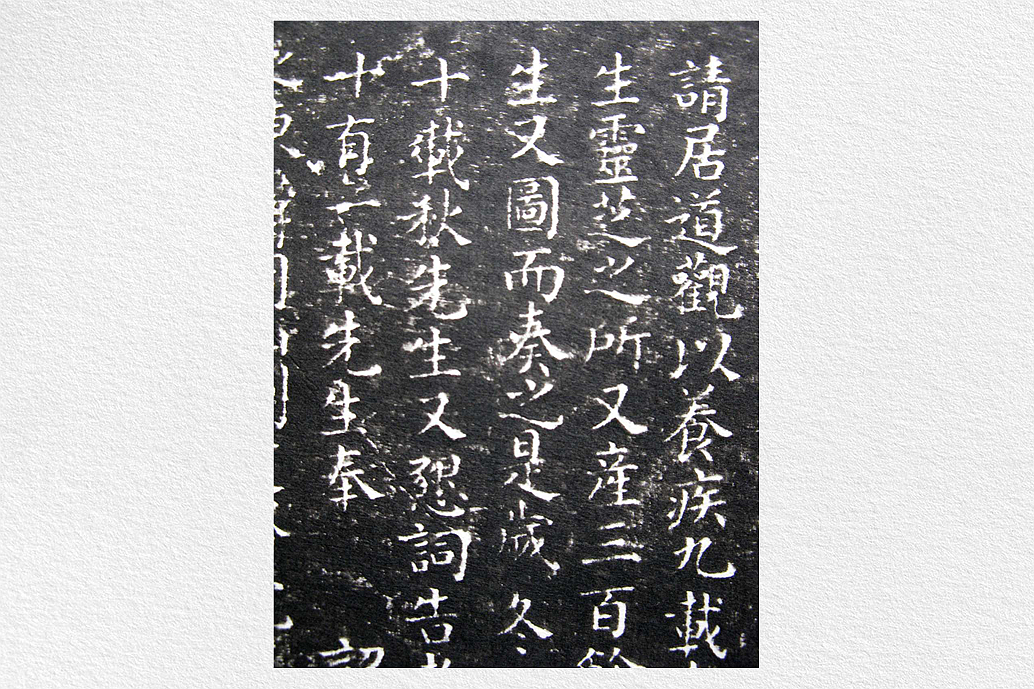 請居道觀以養疾九載
生靈芝之所又產三百餘
生又圖而奏之是歲冬
十載秋先生又懇詞告老
十有一載先生奉 詔